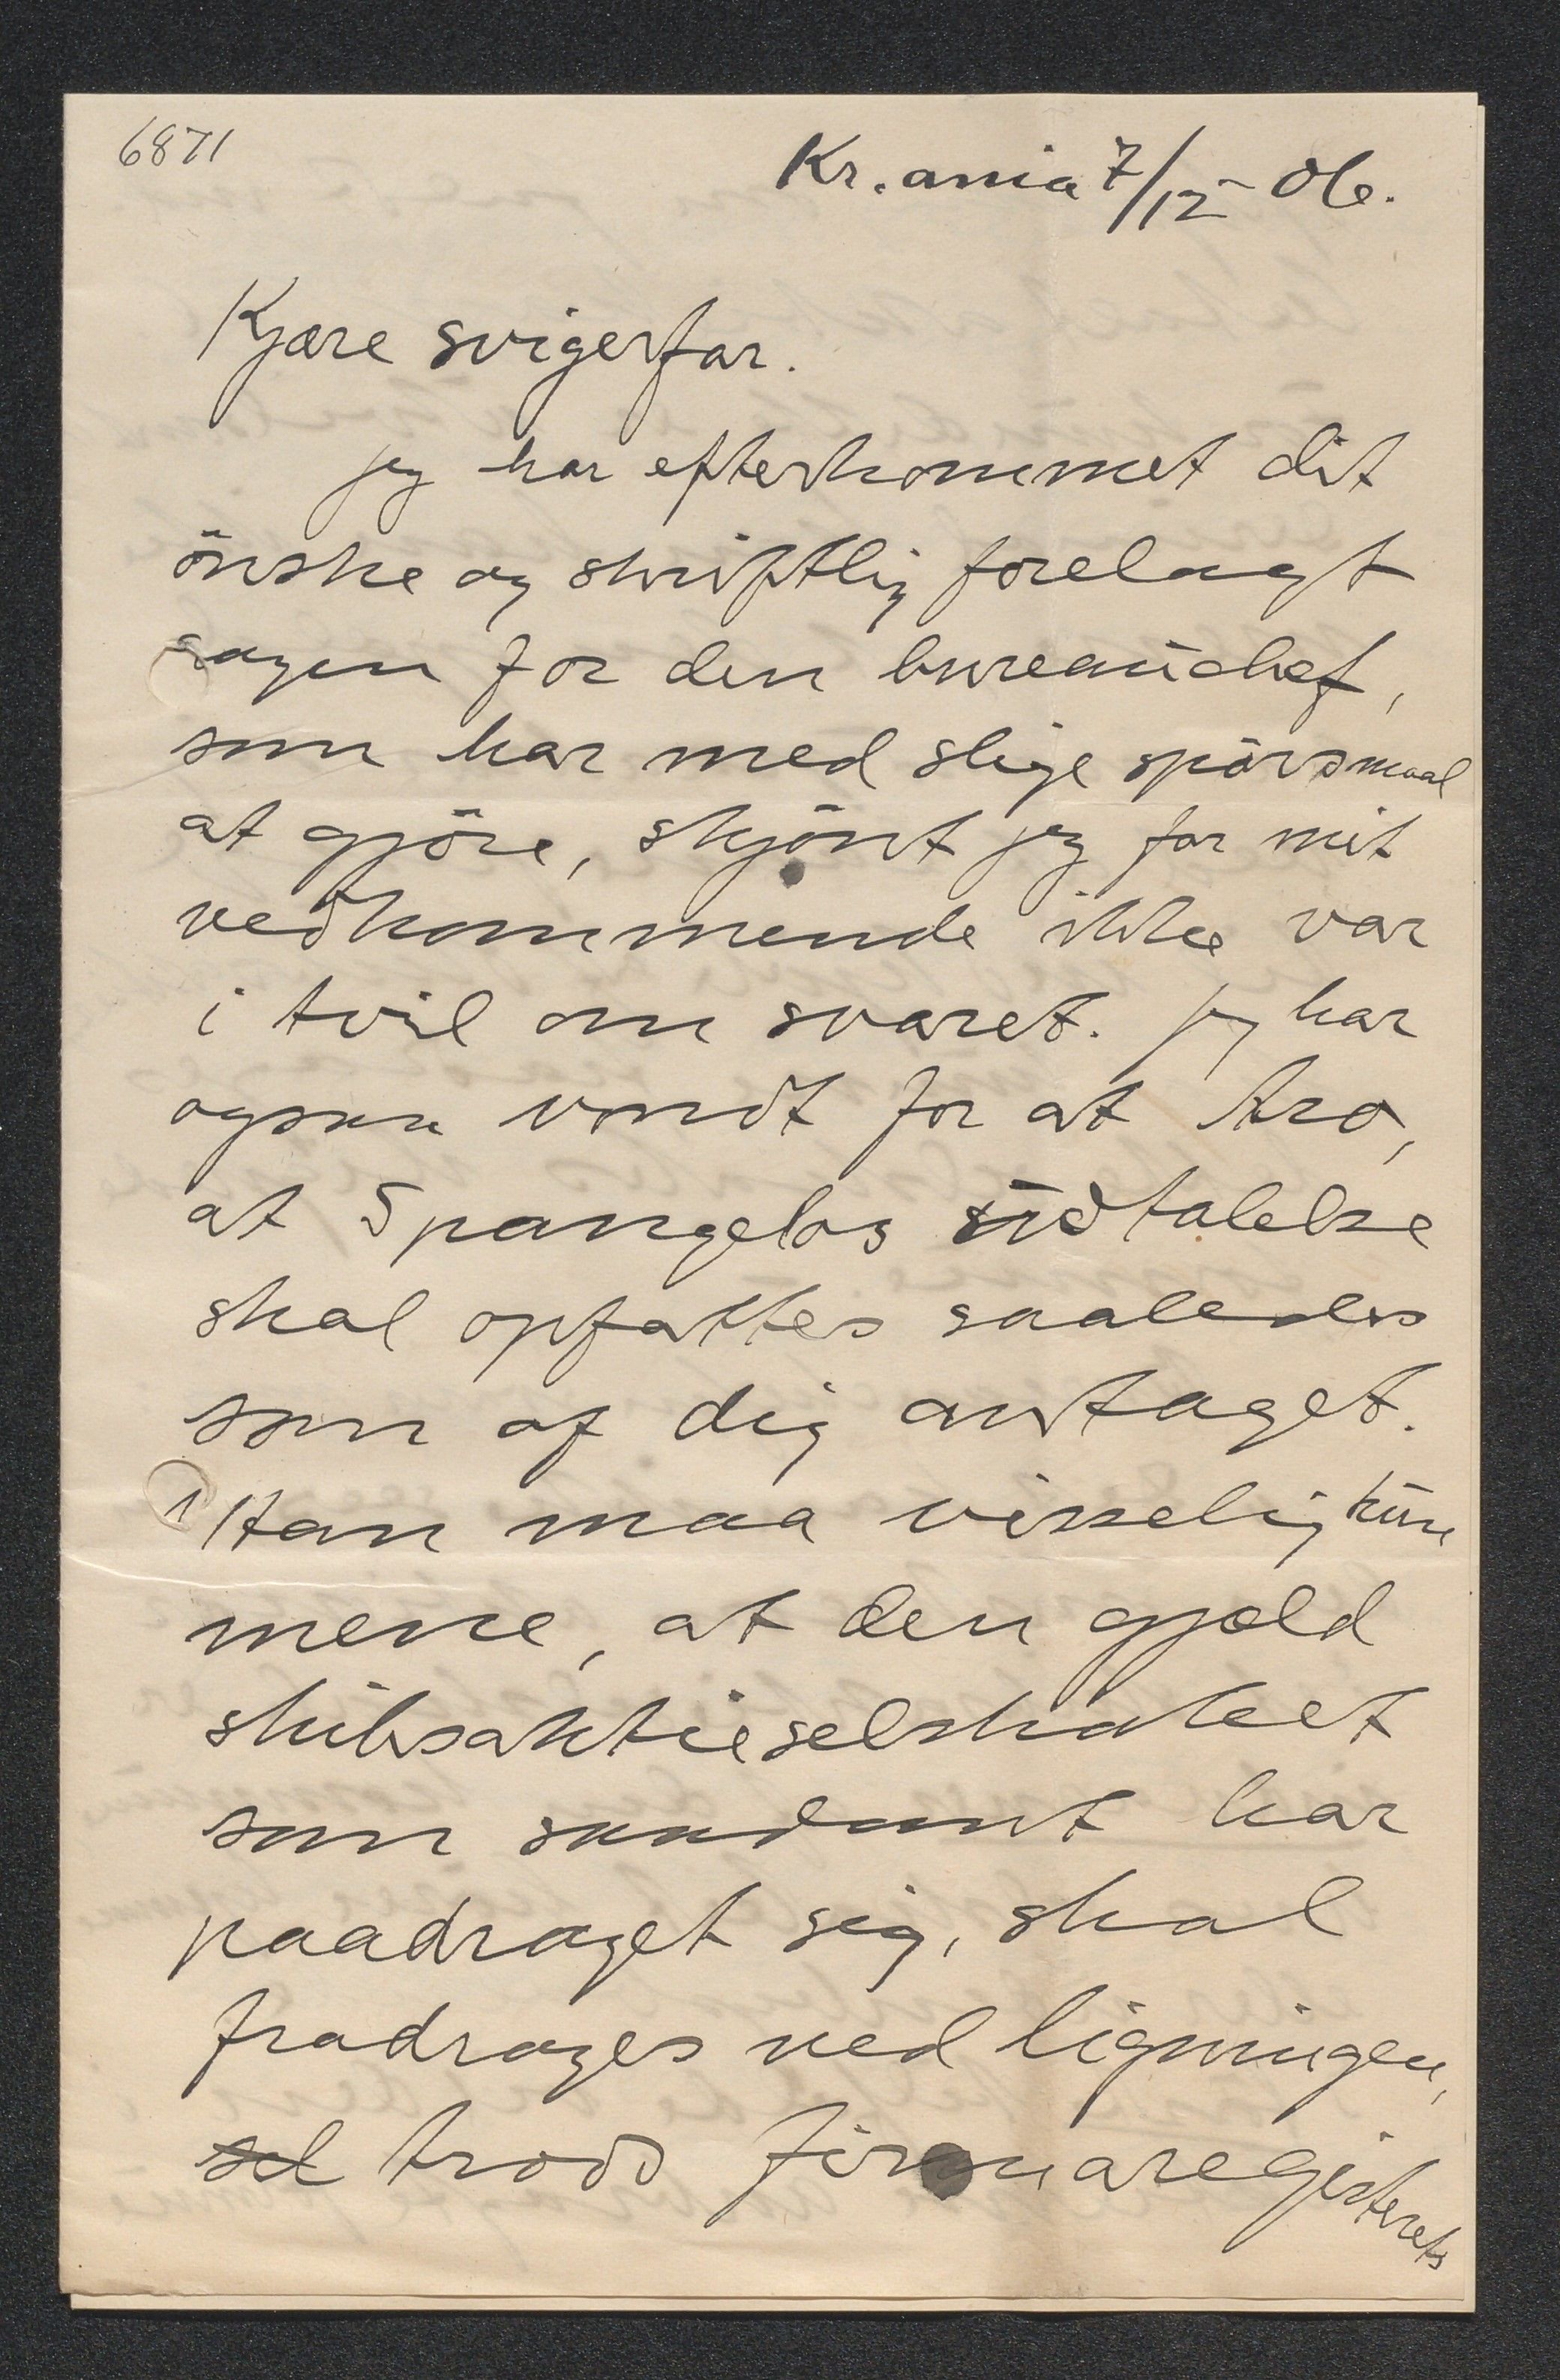 6871
Kr.ania 7/12 - 06.
Kjære svigerfar.
jeg har efterkommet dit
önske og skriftlig forelagt
sagen for den bureauchef,
som har med slige spörsmaal
at gjöre, skjönt jeg for mit
vedkommende ikke var
i tvil om svaret. jeg har
ogsaa vondt for at tro,
at Spangelos udtalelse
skal opfattes saaledes
som af dig antaget.
Han maa visselig kune
mene, at den gjæld
skibsaktieselskabet
som saadant har
paadraget sig, skal
fradrages ved ligningen,
trods firmaregisterets